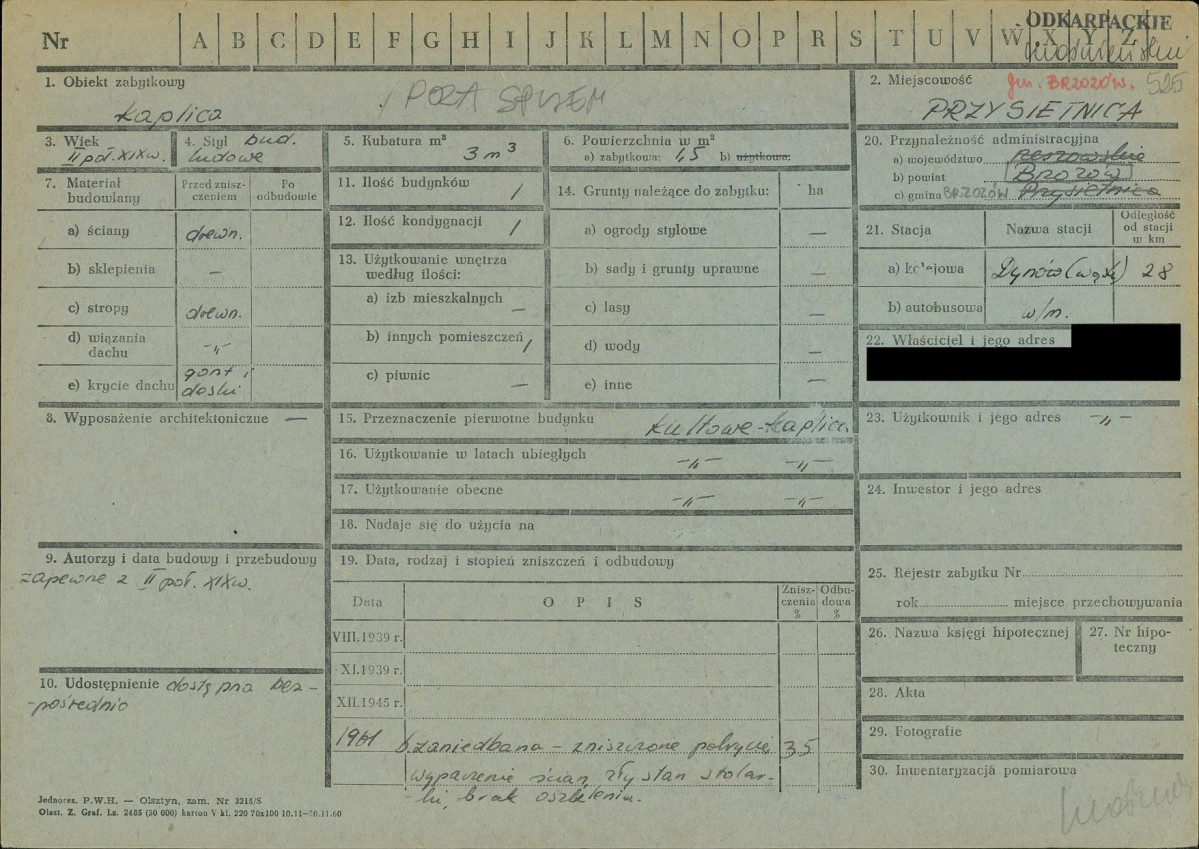 Nr A B C D E F G H I J K L M N O P R S T U V W X Y Z
ODKARPACKIE
1. Obiekt zabytkowy
kaplica
POZA SPISEM
2. Miejscowość gm. BRZOZÓW. 525
PRZYSIETNICA
3. Wiek
II poł. XIXw.
4. Styl bud.
ludowe
5. Kubatura m³
3 m³
6. Powierzchnia w m²
a) zabytkowa: 1,5 b) użytkowa:
7. Materiał budowlany
Przed zniszczeniem
Po odbudowie
a) ściany drewn.
b) sklepienia —
c) stropy drewn.
d) wiązania dachu -"-
e) krycie dachu gont i
deski
8. Wyposażenie architektoniczne —
9. Autorzy i data budowy i przebudowy
zapewne z II poł. XIXw.
10. Udostępnienie dostępna bez-
-pośrednio
11. Ilość budynków 1
12. Ilość kondygnacji 1
13. Użytkowanie wnętrza
według ilości:
a) izb mieszkalnych —
b) innych pomieszczeń 1
c) piwnic —
14. Grunty należące do zabytku: ha
a) ogrody stylowe —
b) sady i grunty uprawne —
c) lasy —
d) wody —
e) inne —
15. Przeznaczenie pierwotne budynku kultowe-kaplica
16. Użytkowanie w latach ubiegłych -"- -"-
17. Użytkowanie obecne -"- -"-
18. Nadaje się do użycia na
19. Data, rodzaj i stopień zniszczeń i odbudowy
Data OPIS Zniszczenia % Odbudowa %
VIII.1939 r.
XI.1939 r.
XII.1945 r.
1961 b. zaniedbana – zniszczone pokrycie, 35
wypaczenie ścian, zły stan stolar-
-ki, brak oszklenia.
20. Przynależność administracyjna
a) województwo rzeszowskie
b) powiat Brzozów
c) gmina BRZOZÓW Przysietnica
21. Stacja Nazwa stacji Odległość od stacji w km
a) kolejowa Dynów (wąsk.) 28
b) autobusowa w/m.
22. Właściciel i jego adres
23. Użytkownik i jego adres -"-
24. Inwestor i jego adres
25. Rejestr zabytku Nr
rok miejsce przechowywania
26. Nazwa księgi hipotecznej
27. Nr hipo-
teczny
28. Akta
29. Fotografie
30. Inwentaryzacja pomiarowa
Jednoraz. P.W.H. — Olsztyn, zam. Nr 3215/S
Olszt. Z. Graf. Lz. 2485 (30 000) karton V kl. 220 70x100 10.11—30.11.60